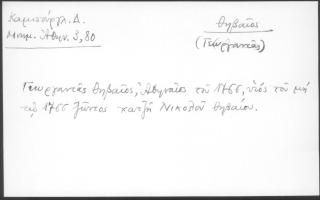 Καμπούργλ. Δ.
Μνημ. Ἀθην. 3, 80
Θηβαῖος
(Γεωργαντᾶς)
Γεωργαντᾶς Θηβαῖος, Ἀθηναῖος τοῦ 1766, υἱός τοῦ μὴ
τῷ 1766 ζῶντος χατζῆ Νικολοῦ Θηβαίου.